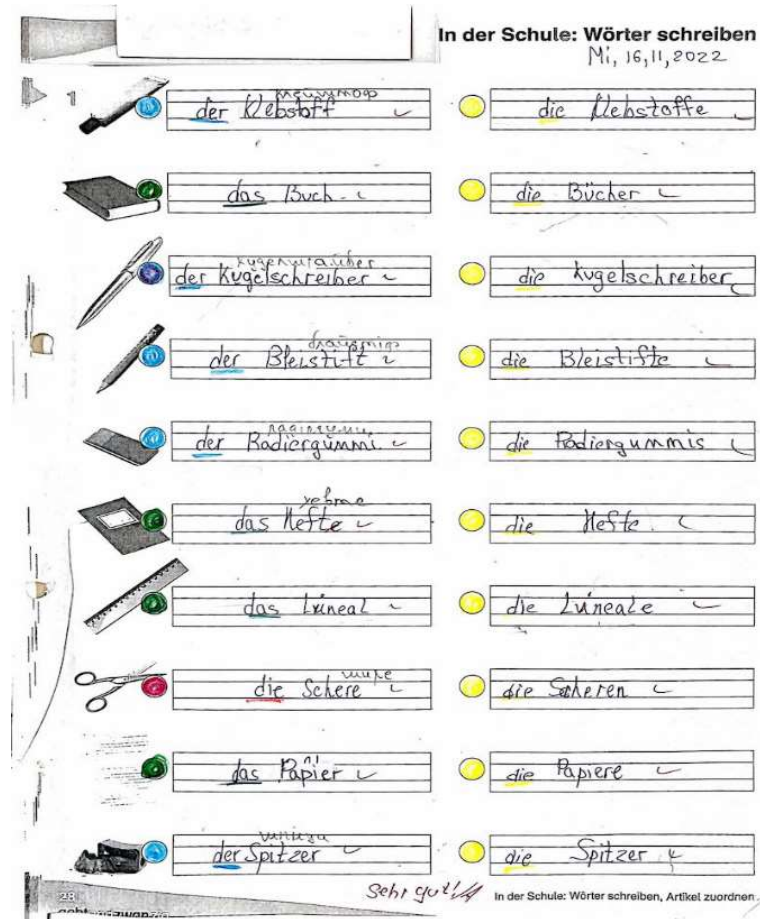 In der Schule: Wörter schreiben
Mi, 16,11,2022
1
der Klebstoff
die Klebstoffe
das Buch
die Bücher
der Kugelschreiber
die Kugelschreiber
der Bleistift
die Bleistifte
der Radiergummi
die Radiergummis
das Hefte
die Hefte
das Lineal
die Lineale
die Schere
die Scheren
das Papier
die Papiere
der Spitzer
die Spitzer
Sehr gut!
28
In der Schule: Wörter schreiben, Artikel zuordnen